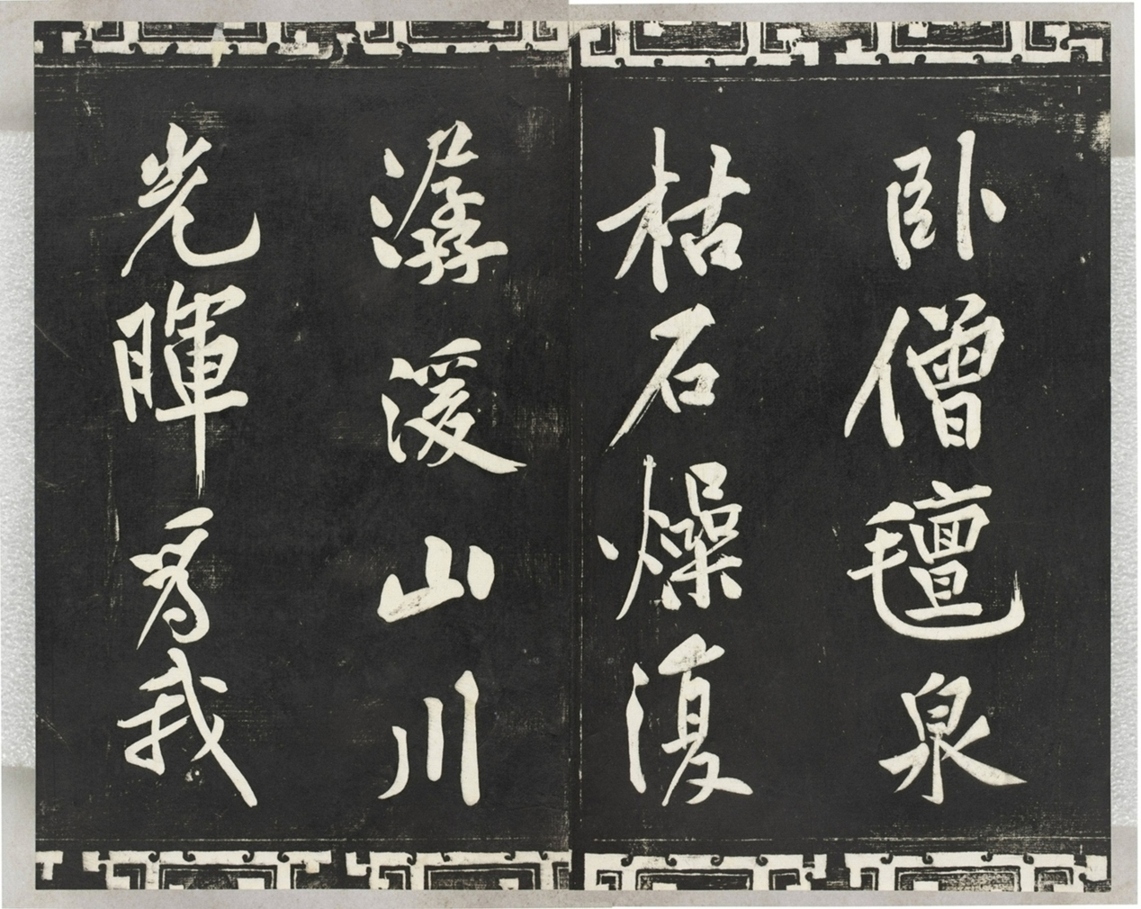 卧僧氊泉
枯石燥復
潺湲山川
光暉為我